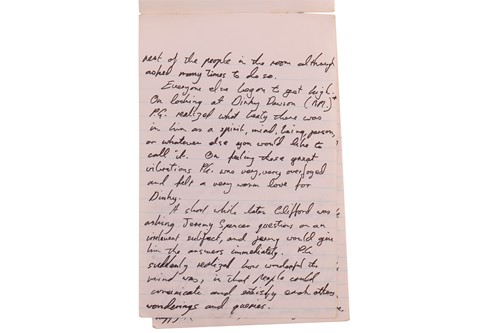 rest of the people in the room although
asked many times to do so.
Everyone else began to get high.
On looking at Dinky Dawson (R.M.)
P.G. realized what beauty there was
in him as a spirit, mind, being, person,
or whatever else you would like to
call it. On feeling these great
vibrations P.G. was very, very overjoyed
and felt a very warm love for
Dinky.
A short while later Clifford was
asking Jeremy Spencer questions on an
irrelevent subject, and jeremy would give
him the answers immediately. P.G.
suddenly realized how wonderful the
mind was, in that people could
communicate and satisfy each others
wonderings and queries.